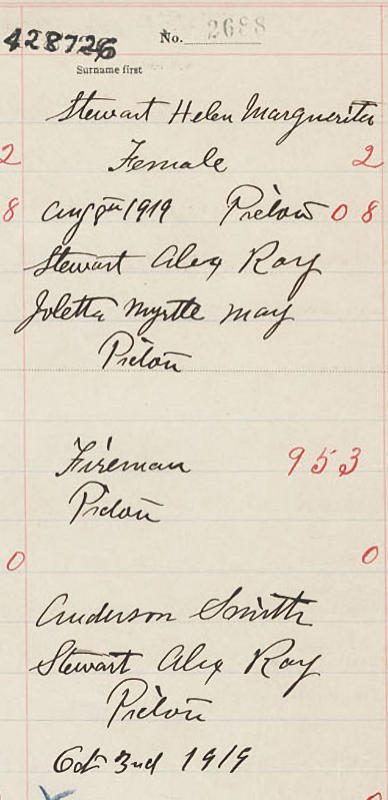 428726 No. 2688
Surname first
Stewart Helen Marguerita
2 Female 2
8 Aug 9th 1919 Picton 0 8
Stewart Alex Roy
Joletta Myrtle May
Picton
Fireman 953
Picton
0 0
Anderson Smith
Stewart Alex Roy
Picton
Oct 2nd 1919